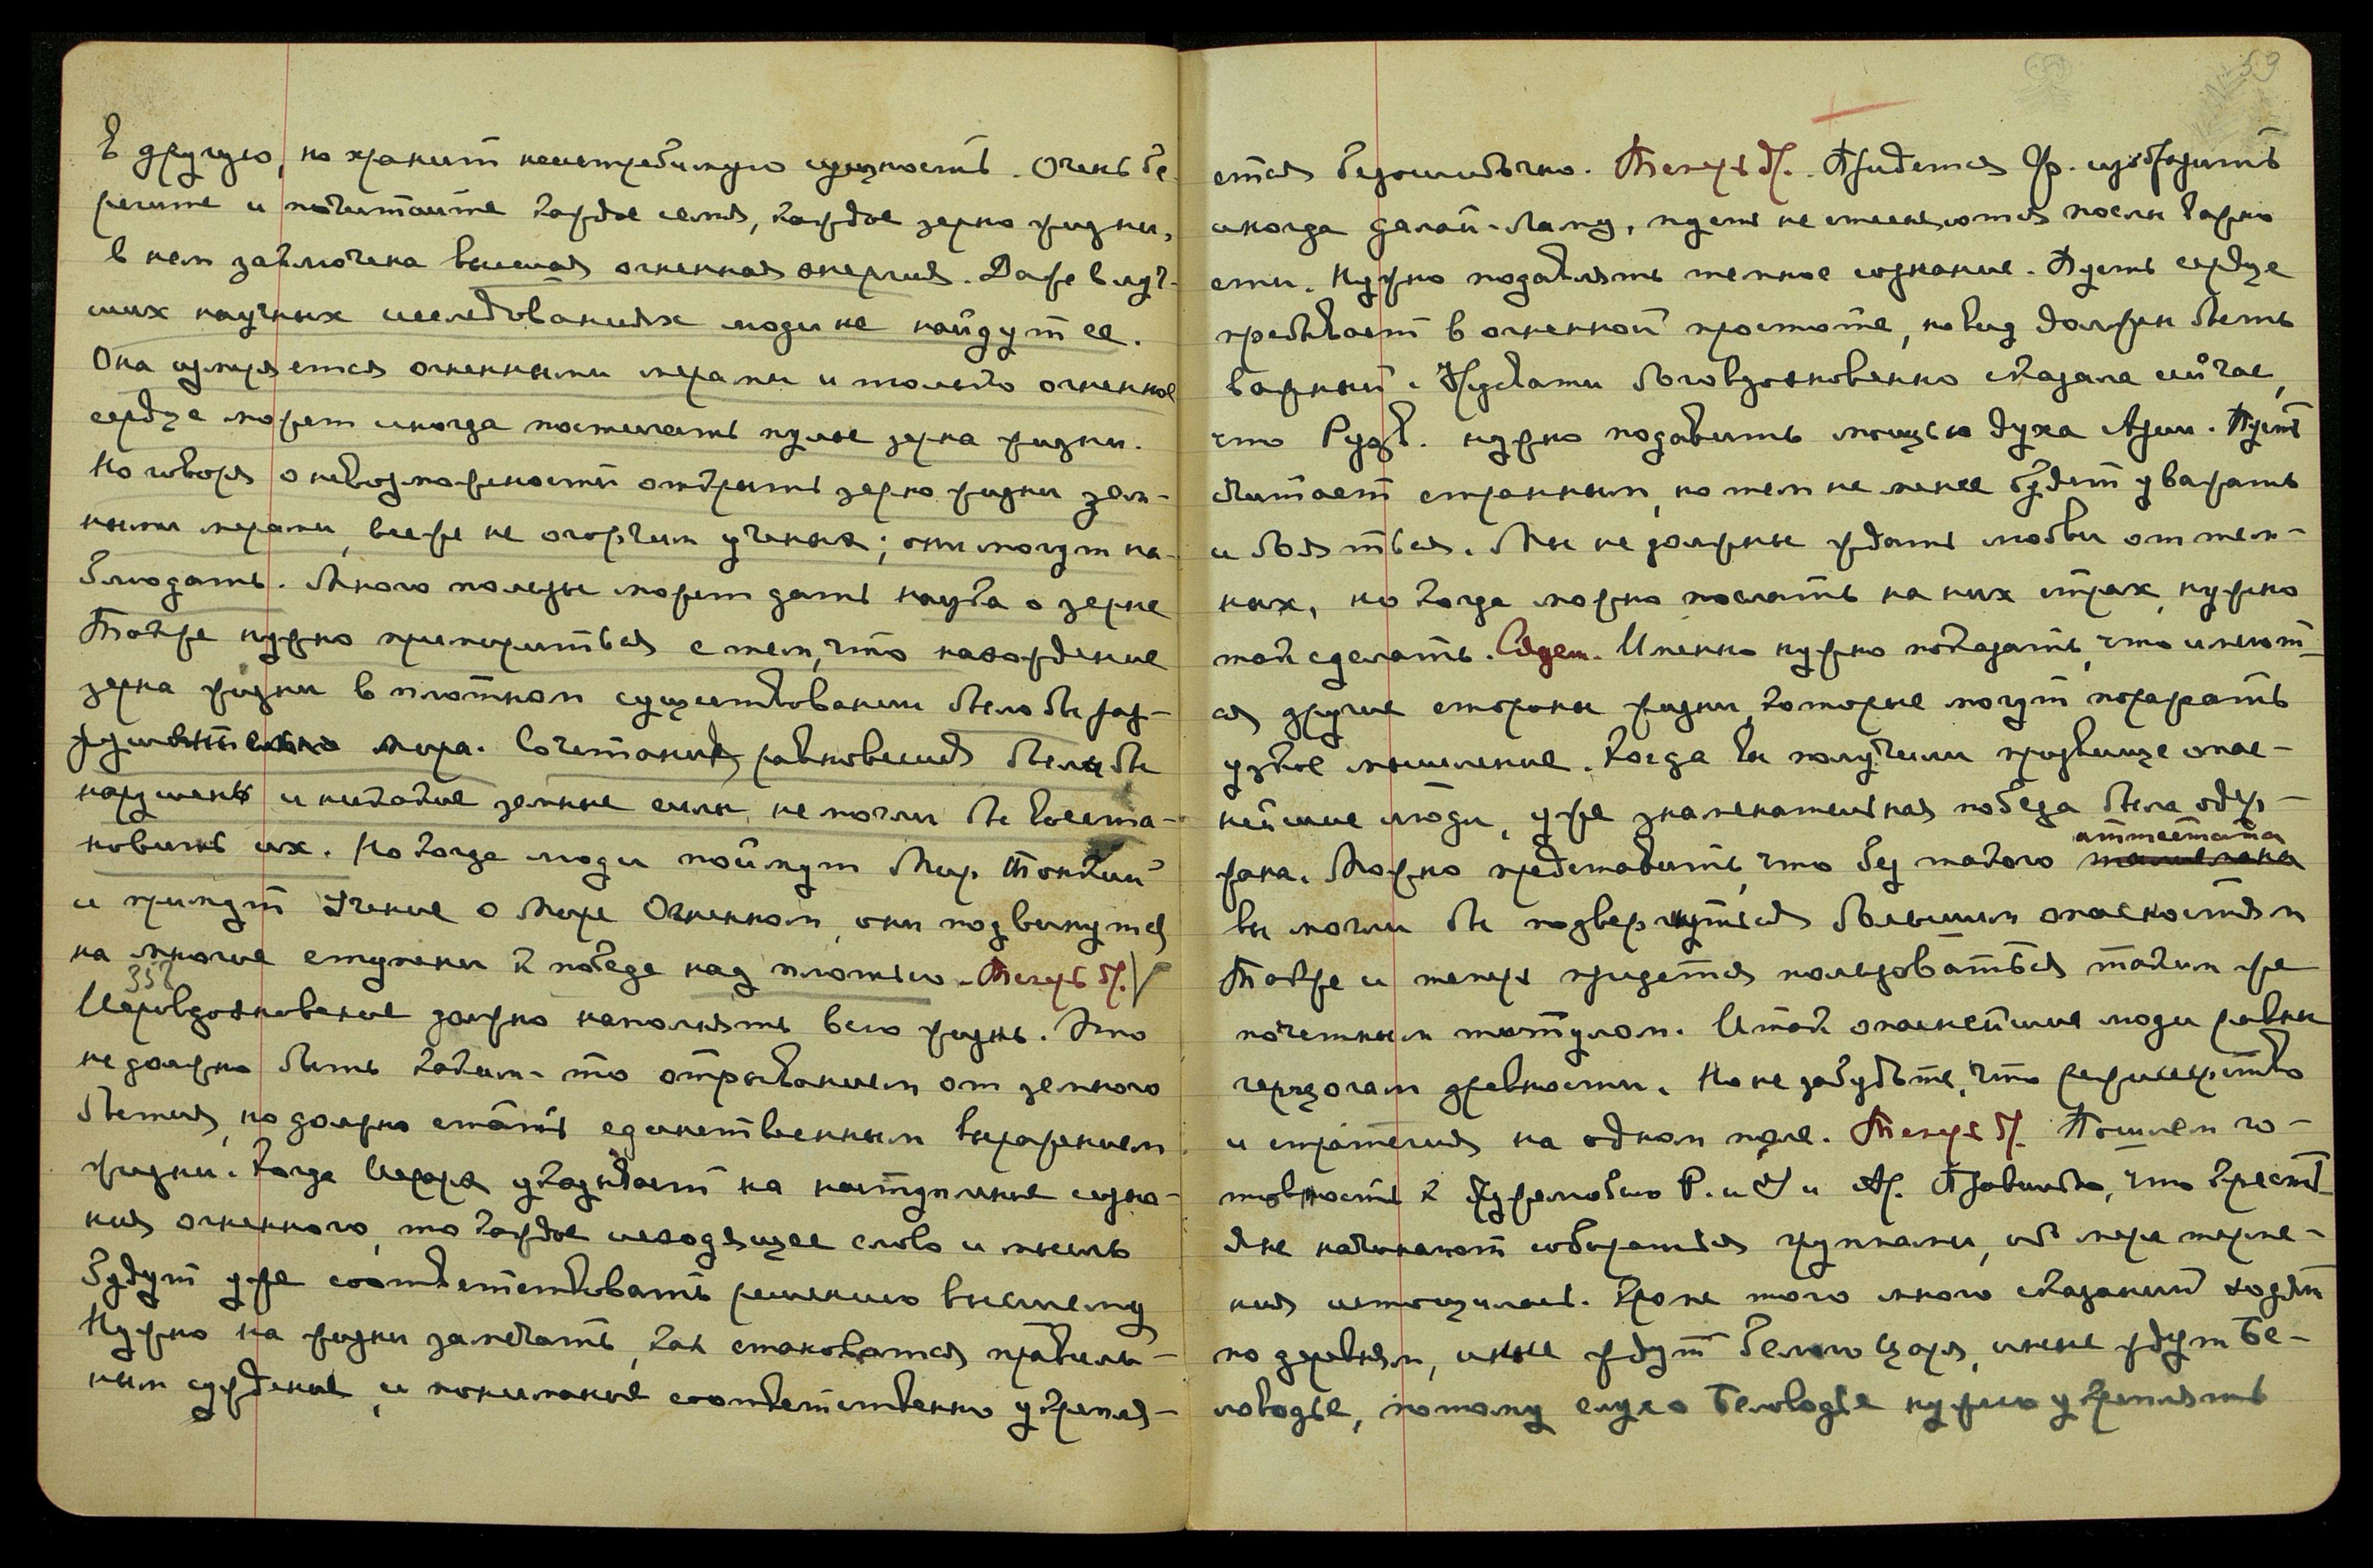 в другую, но хранит неистребимую сущность. Очень бе-
регите и почитайте каждое семя, каждое зерно жизни,
в нем заключена высшая огненная энергия. Даже в луч-
ших научных исследованиях люди не найдут ее.
Она измеряется огненными мерами и только огненное
сердце может иногда постигать пульс зерна жизни.
Но говоря о невозможности открыть зерно жизни зем-
ными мерами, все же не огорчим ученых; они могут на-
блюдать. Много пользы может дать наука о зерне
Также нужно примириться с тем, что нахождение
зерна жизни в плотном существовании было бы раз-
рушительно мира. Сочетания равновесия были бы
нарушены и никакие земные силы не могли бы восста-
новить их. Но когда люди поймут Мир Тонкий
и примут Учение о Мире Огненном, они подвинутся
на многие ступени к победе над плотью. Теперь др.
352
Иеровдохновение должно наполнять всю жизнь. Это
не должно быть каким-то отрыванием от земного
бытия, но должно стать единственным выражением
жизни. Когда Иерарх указывает на наступление созна-
ния огненного, то каждое исходящее слово и мысль
будут уже соответствовать решению высшему
Нужно на жизни замечать, как становится правиль-
ным суждение, и понимание соответственно укрепля-
59
ется безошибочно. Теперь др. Придется Фр. изображать
иногда Далай-Ламу, пусть не стесняются после важно
сти. Нужно подавлять темное сознание. Пусть сердце
пребывает в огненной простоте, но вид должен быть
важный. боговдохновенно сказала сейчас,
что Рузв. нужно подавить мощью духа Азии. Пусть
считает странным, но тем не менее будет уважать
и бояться. Мы не должны ждать любви от тем-
ных, но когда можно послать на них страх, нужно
так сделать. Именно нужно показать, что имеют-
ся другие стороны жизни, которые могут поражать
узкое мышление. Когда вы получили прозвище опас-
нейшие люди, уже знаменательная победа была одер-
жана. Можно представить, что без такого аттестата
вы могли бы подвергнуться большим опасностям
Также и теперь придется пользоваться таким же
почетным титулом. И так опаснейшие люди равны
герцогам древности. Но не забудьте, что режиссерство
и стратегия на одном поле. Теперь др. Пошлем го-
товность к Р. и Правильно, что крестья-
яне начинают собираться группами, ибо мера терпе-
ния истощилась. Кроме того много сказаний ходят
по деревням, иные ждут белого царя, иные ждут Бе-
ловодье, потому слух о Беловодье нужно укреплять